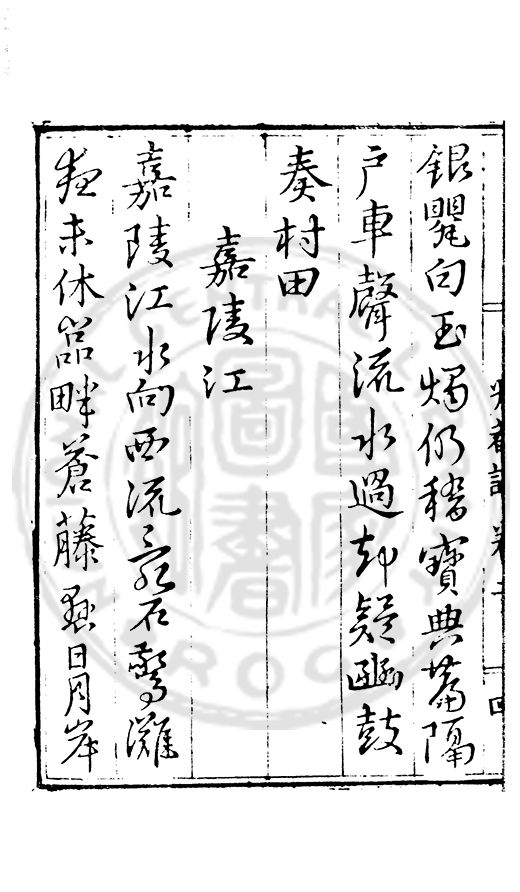 銀甖句玉燭仍稽寶典篇隔
戶車聲流水過却疑豳鼓
奏村田
嘉陵江
嘉陵江水向西流亂石驚灘
夜未休嵒畔蒼藤懸日月崖